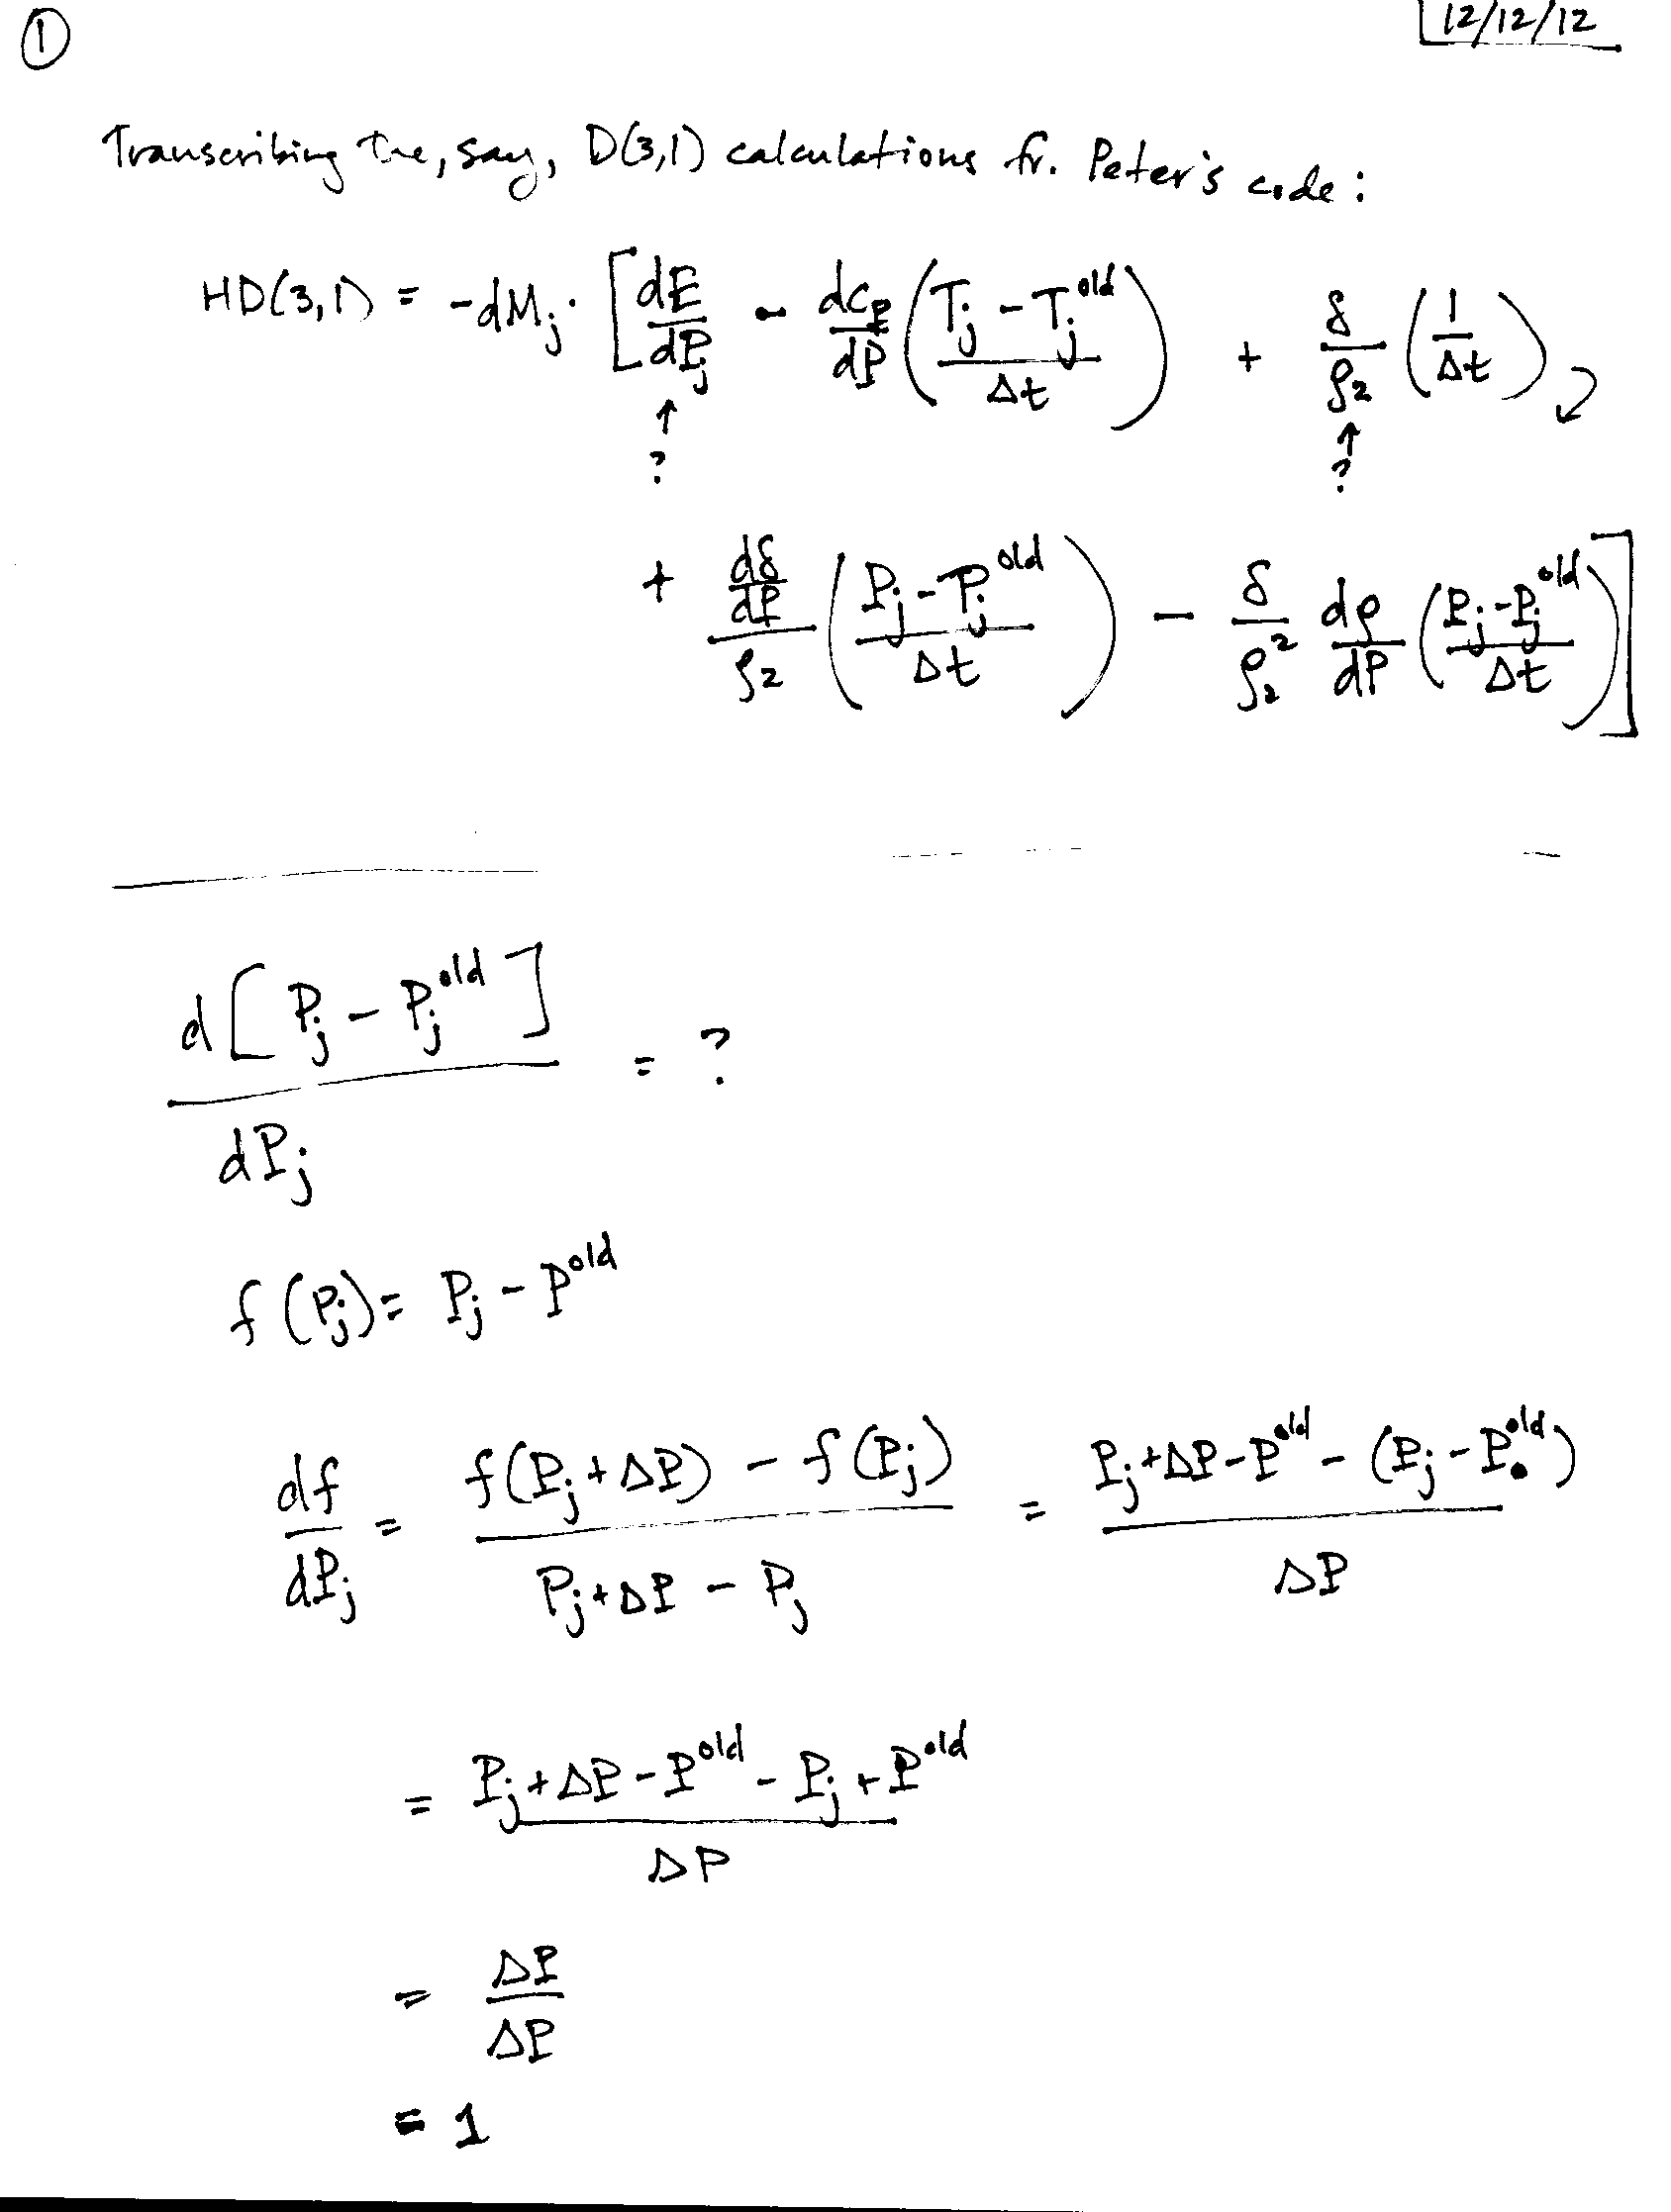 ①
12/12/12
Transcribing the, say, D(3,1) calculations fr. Peter's code:
HD(3,1) = -dM_j · [ dE/dP_j - dc_P/dP ( (T_j - T_j^old)/Δt ) + δ/ρ_2 ( 1/Δt )
↑ ↑
? ?
+ (dδ/dP)/ρ_2 ( (P_j - P_j^old)/Δt ) - δ/ρ_2^2 dρ/dP ( (P_j - P_j^old)/Δt ) ]
d[ P_j - P_j^old ]/dP_j = ?
f(P_j) = P_j - P^old
df/dP_j = (f(P_j + ΔP) - f(P_j))/(P_j + ΔP - P_j) = (P_j + ΔP - P^old - (P_j - P^old))/ΔP
= (P_j + ΔP - P^old - P_j + P^old)/ΔP
= ΔP/ΔP
= 1